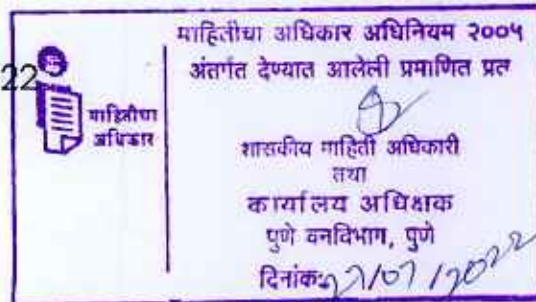 22
माहितीचा
अधिकार
माहितीचा अधिकार अधिनियम २००५
अंतर्गत देण्यात आलेली प्रमाणित प्रत
शासकीय माहिती अधिकारी
तथा
कार्यालय अधिक्षक
पुणे वनविभाग, पुणे
दिनांक:27/07/2022